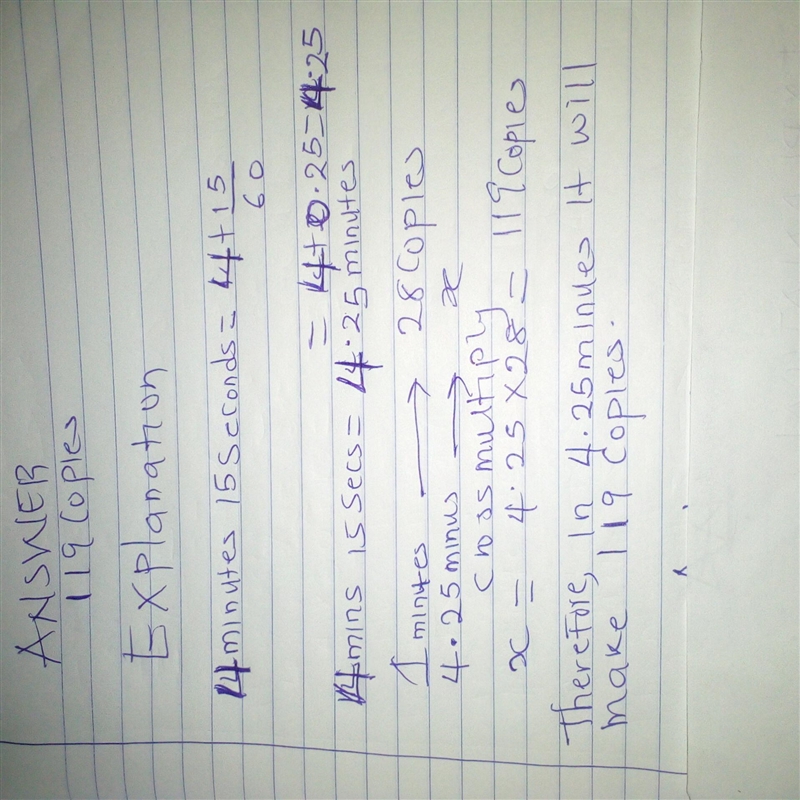 ANSWER
119 Copies
Explanation
4 minutes 15 Seconds = 4 + 15/60
= 4 + 0.25 = 4.25
4 mins 15 Secs = 4.25 minutes
1 minutes → 28 Copies
4.25 minus → x
Cross multiply
x = 4.25 x 28 = 119 Copies
Therefore, In 4.25 minues It will
make 119 Copies.